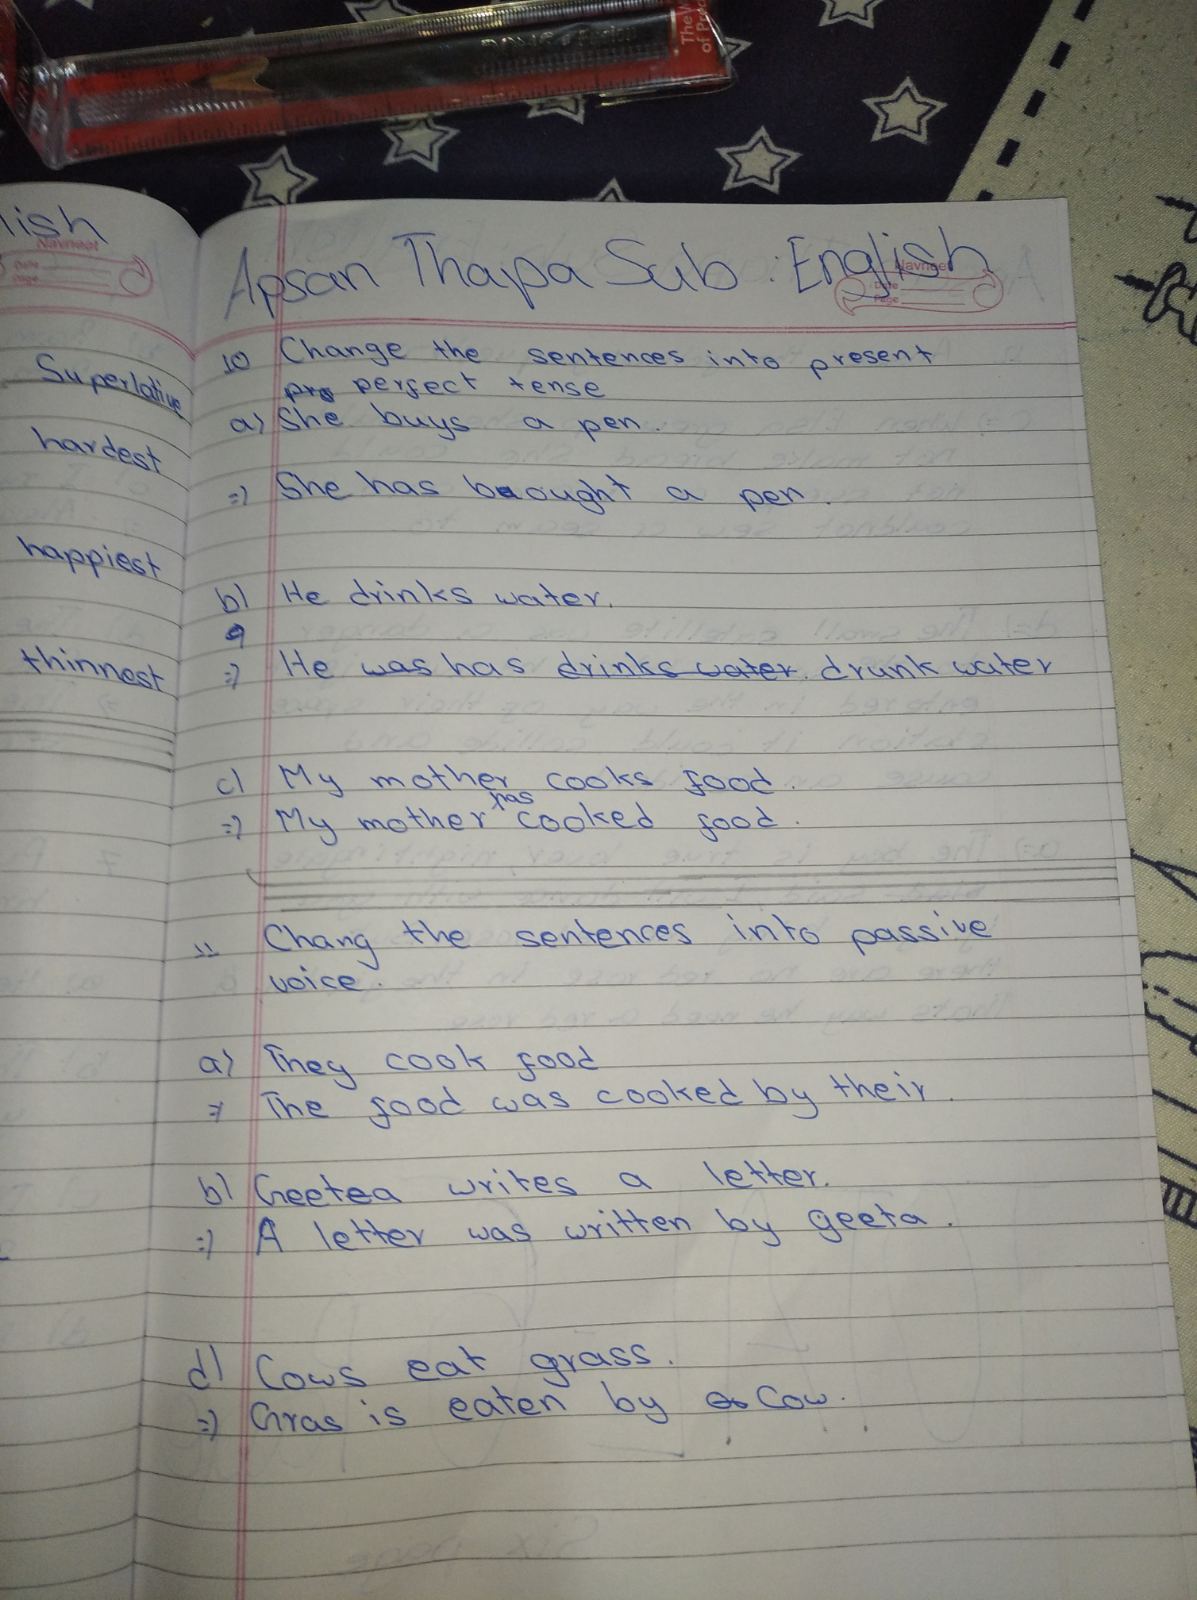 lish
Navneet
Date
Page
Superlative
hardest
happiest
thinnest
The
of Pro
Apsan Thapa Sub : English
Navneet
Date
Page
10 Change the sentences into present
perfect tense
a) She buys a pen.
=) She has bought a pen.
b) He drinks water.
=) He was has drinks water. drunk water
c) My mother cooks food.
=) My mother has cooked food.
11 Chang the sentences into passive
voice.
a) They cook food
=) The food was cooked by their.
b) Geetea writes a letter.
=) A letter was written by geeta.
d) Cows eat grass.
=) Gras is eaten by Cow.